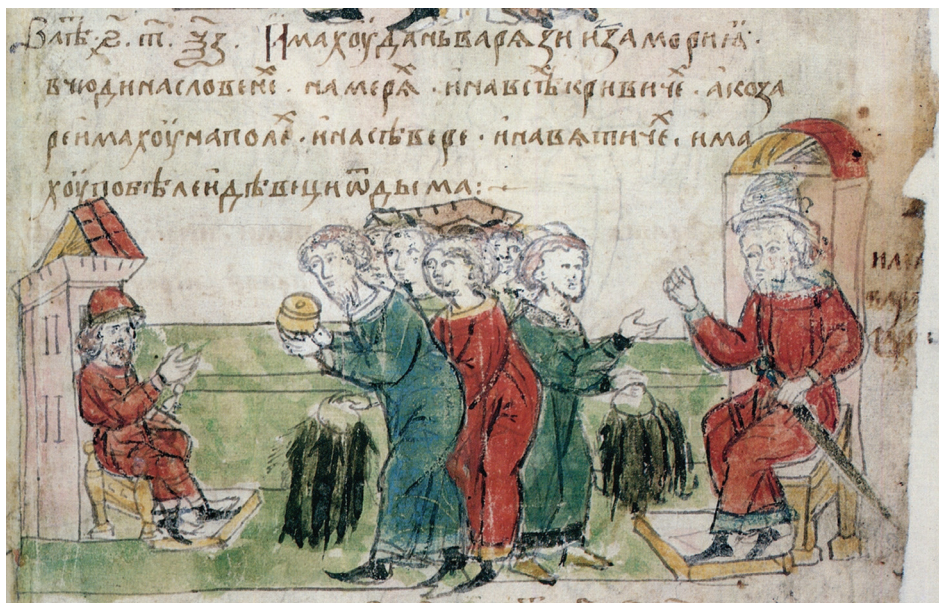 В лѣⷮ . ҂ѕ҃ . т҃ . ѯ҃з . Имахоу дань варязи изамориꙗ .
вчюди насловенеⷯ . намеряⷯ . инавсѣⷯ кривичеⷯ . акоза
ре имахоу наполеⷯ . инасѣвере . инавятичеⷯ . има
хоу побѣлеи дѣвеци ѿдыма :